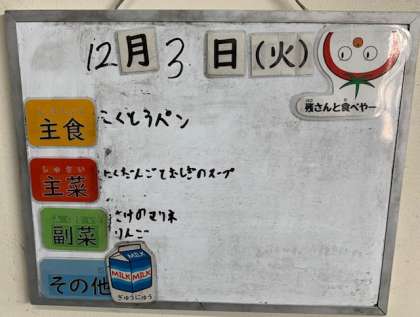 12月3日(火)
残さんと食べやー
主食
こくとうパン
しゅさい
主菜
にくだんごとむしぎのスープ
副菜
さけのマリネ
りんご
その他
MILK MILK
ぎゅうにゅう